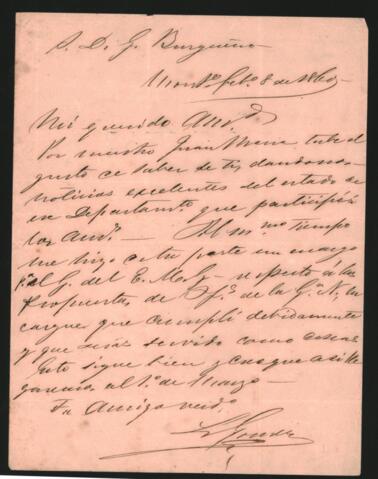 S. D. G. Burgueño
Montº febº 8 de 1860
Mi querido Amº
Por nuestro Juan Mune tube el
gusto de saber de ti, dandonos
noticias excelentes del estado de
ese Departamtº que participé á
los amºs — Al mmo tiempo
me hizo á tu parte un encargo
pª el G. del E. M. G. respecto á las
Propuestas de Jfs de la Gª N. en
cargue que cumplí debidamente
y que serás servido como deseas
Esto sigue bien y creo que asi lle
garemos al 1º de Marzo —
Tu Amigo